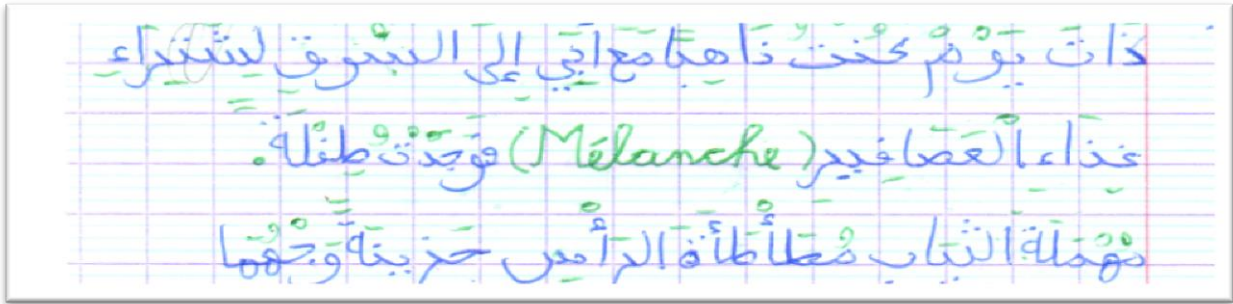 ذَاتَ يَوْمٍ كُنْتُ ذَاهِبًا مَعَ أَبِي إِلَى السُّوقِ لِشِرَاءِ
غِذَاءِ الْعَصَافِيرِ (Mélanche) فَوَجَدْتُ طِفْلَةً.
مُهْمَلَةَ الثِّيَابِ مُطَأْطَأَةَ الرَّأْسِ حَزِينَةً وَجْهُهَا